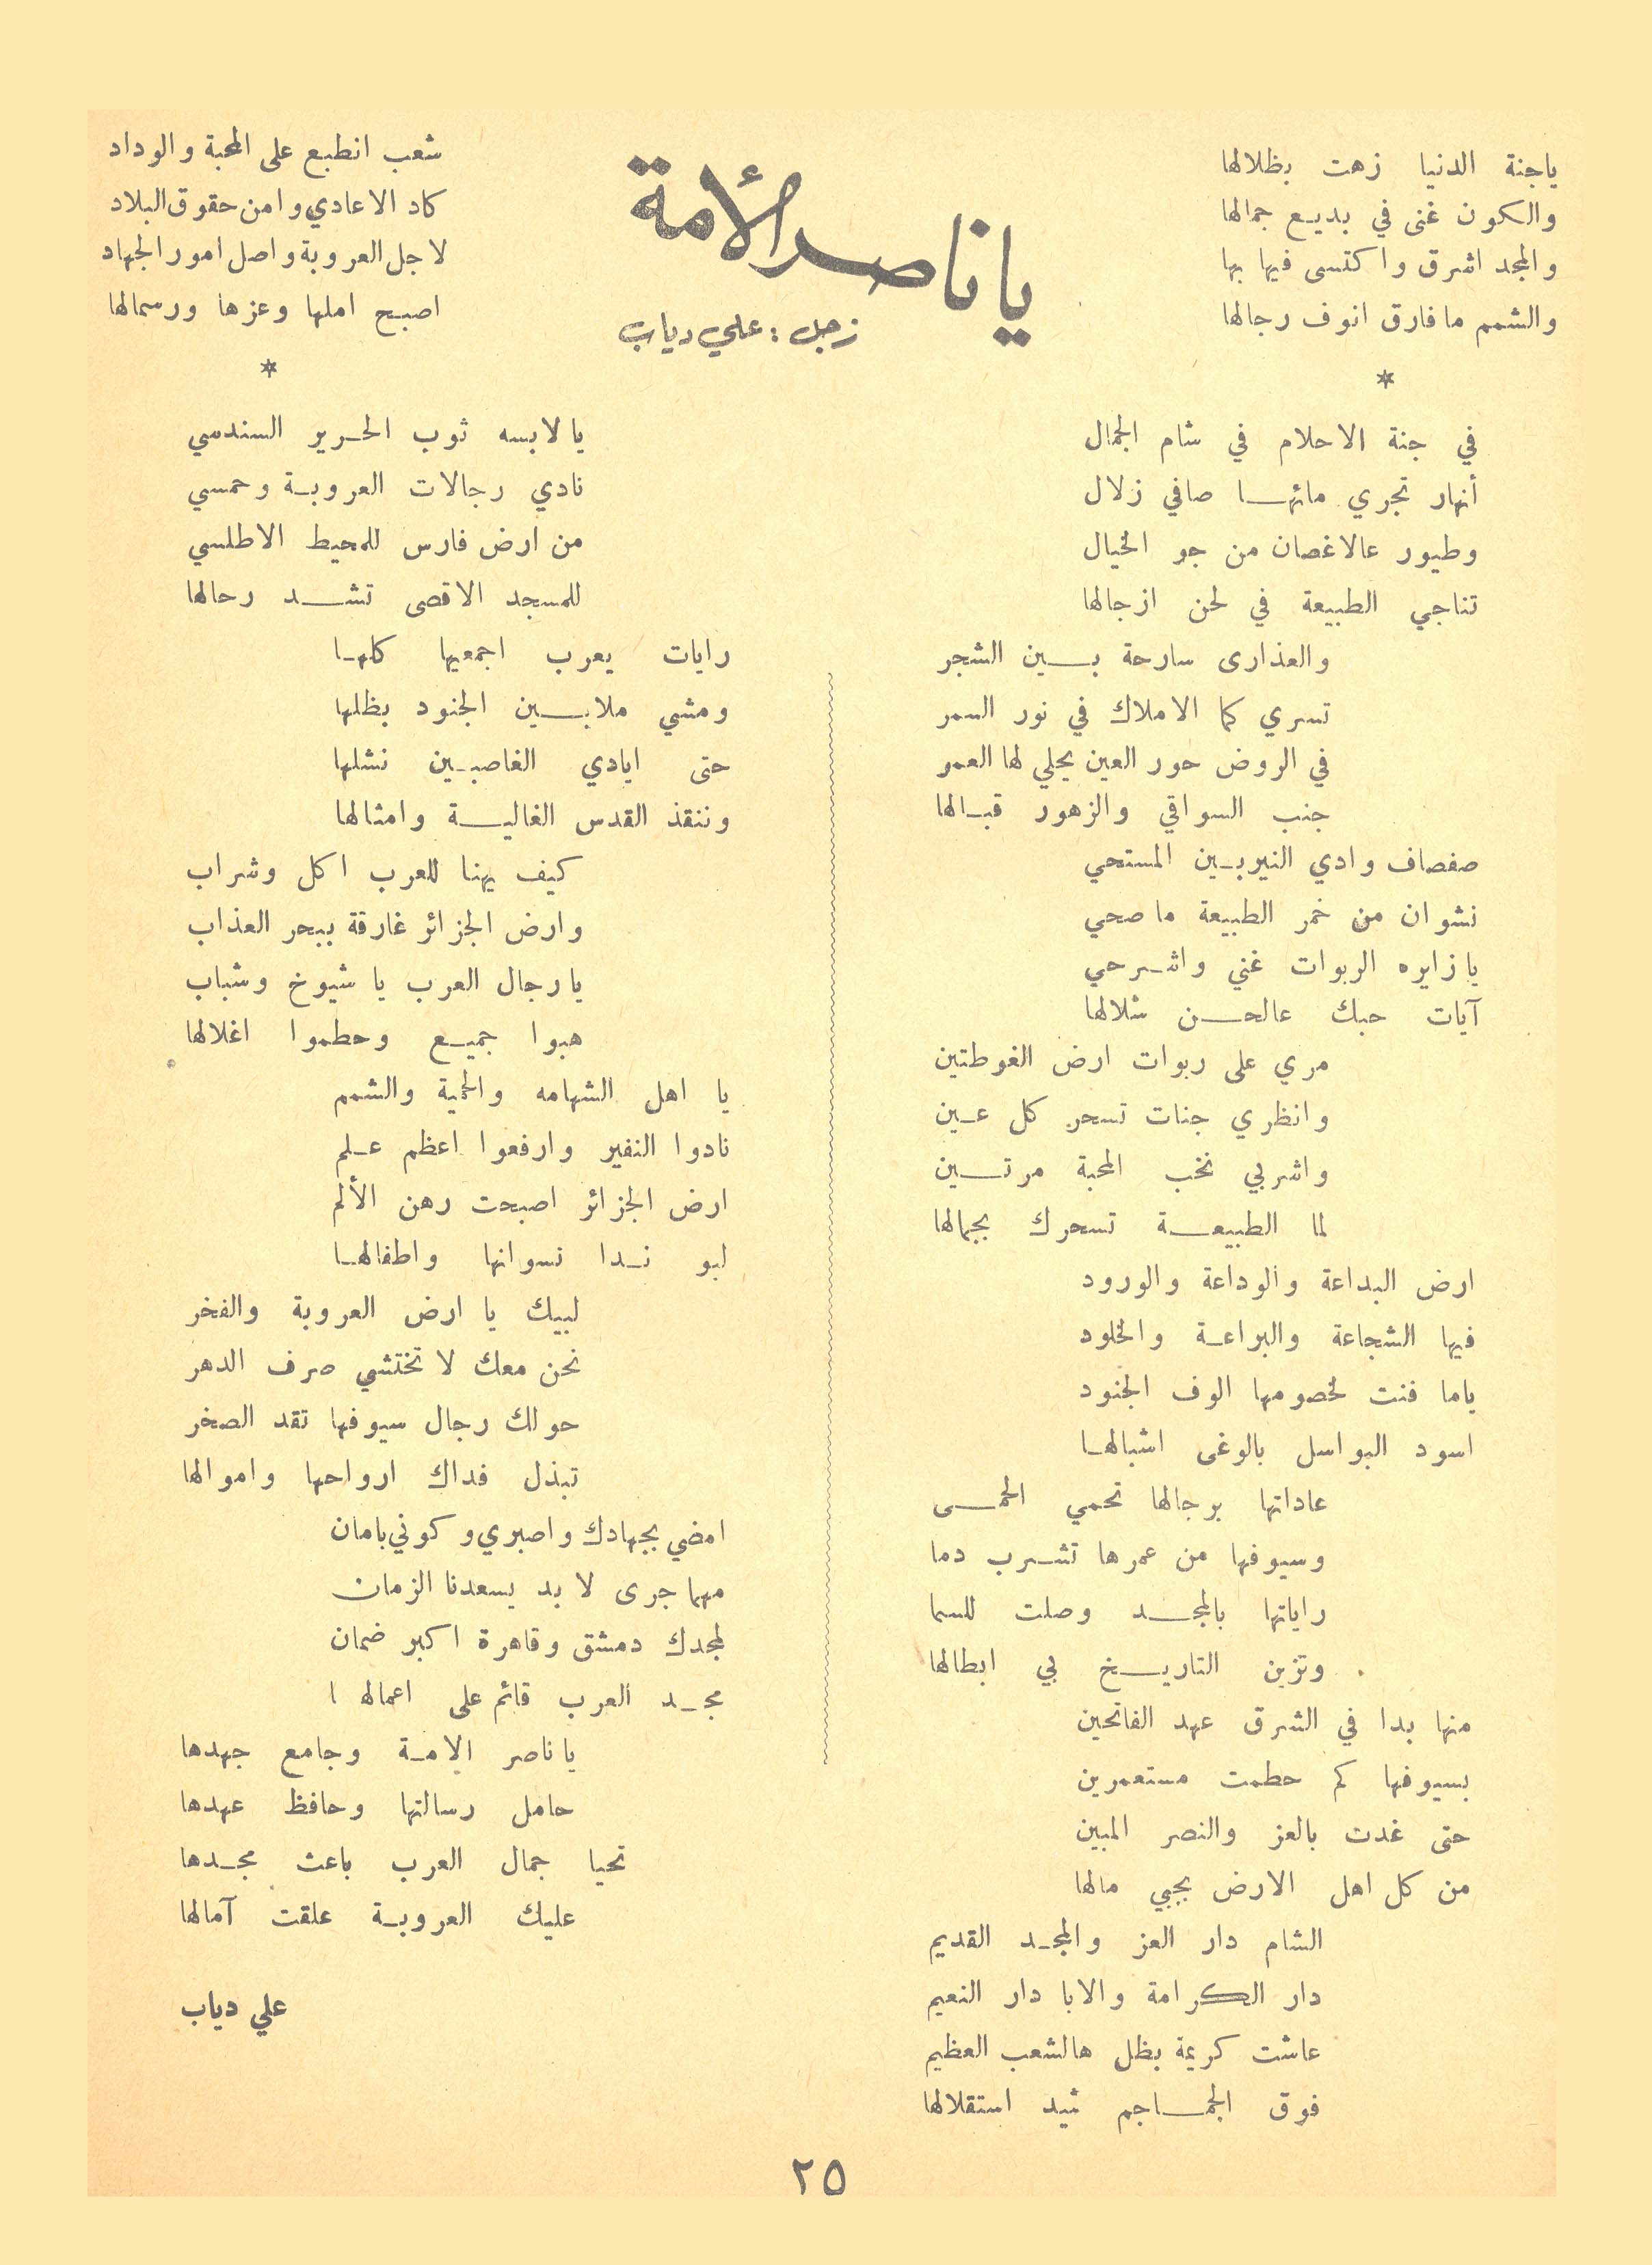 يا ناصر الأمة
زجل : علي دياب
ياجنة الدنيا زهت بظلالها
والكون غنى في بديع جمالها
والمجد اشرق واكتسى فيها بها
والشمم مافارق انوف رجالها
*
في جنة الاحلام في شام الجمال
أنهار تجري مائها صافي زلال
وطيور عالاغصان من جو الخيال
تناجي الطبيعة في لحن ازجالها
والعذارى سارحة بين الشجر
تسري كما الاملاك في نور السمر
في الروض حور العين يحلي لها العمر
جنب السواقي والزهور قبالها
صفصاف وادي النيربين المستحي
نشوان من خمر الطبيعة ما صحي
يا زايره الربوات غني واشرحي
آيات حبك عالحسن شلالها
مري على ربوات ارض الغوطتين
وانظري جنات تسحر كل عين
واشربي نخب المحبة مرتين
لما الطبيعة تسحرك بجمالها
ارض البداعة والوداعة والورود
فيها الشجاعة والبراعة والخلود
ياما فنت لخصومها الوف الجنود
اسود البواسل بالوغى اشبالها
عاداتها برجالها تحمي الحمى
وسيوفها من عمرها تشرب دما
راياتها بالمجد وصلت للسما
وتزين التاريخ بي ابطالها
منها بدا في الشرق عهد الفاتحين
بسيوفها كم حطمت مستعمرين
حتى غدت بالعز والنصر المبين
من كل اهل الارض يجبي مالها
الشام دار العز والمجد القديم
دار الكرامة والابا دار النعيم
عاشت كريمة بظل هالشعب العظيم
فوق الجماجم شيد استقلالها
شعب انطبع على المحبة والوداد
كاد الاعادي وامن حقوق البلاد
لاجل العروبة واصل امور الجهاد
اصبح املها وعزها ورسمالها
*
يا لابسه ثوب الحرير السندسي
نادي رجالات العروبة وحمسي
من ارض فارس للمحيط الاطلسي
للمسجد الاقصى تشد رحالها
رايات يعرب اجمعيها كلها
ومشي ملابين الجنود بظلها
حتى ايادي الغاصبين نشلها
وننقذ القدس الغالية وامثالها
كيف يهنا للعرب اكل وشراب
وارض الجزائر غارقة ببحر العذاب
يا رجال العرب يا شيوخ وشباب
هبوا جميع وحطموا اغلالها
يا اهل الشهامه والحمية والشمم
نادوا النفير وارفعوا اعظم علم
ارض الجزائر اصبحت رهن الألم
لبو ندا نسوانها واطفالها
لبيك يا ارض العروبة والفخر
نحن معك لا تختشي صرف الدهر
حولك رجال سيوفها تقد الصخر
تبذل فداك ارواحها واموالها
امضي بجهادك واصبري وكوني بامان
مهما جرى لا بد يسعدنا الزمان
لمجدك دمشق وقاهرة اكبر ضمان
مجد العرب قائم على اعمالها
يا ناصر الامة وجامع جهدها
حامل رسالتها وحافظ عهدها
تحيا جمال العرب باعث مجدها
عليك العروبة علقت آمالها
علي دياب
٢٥